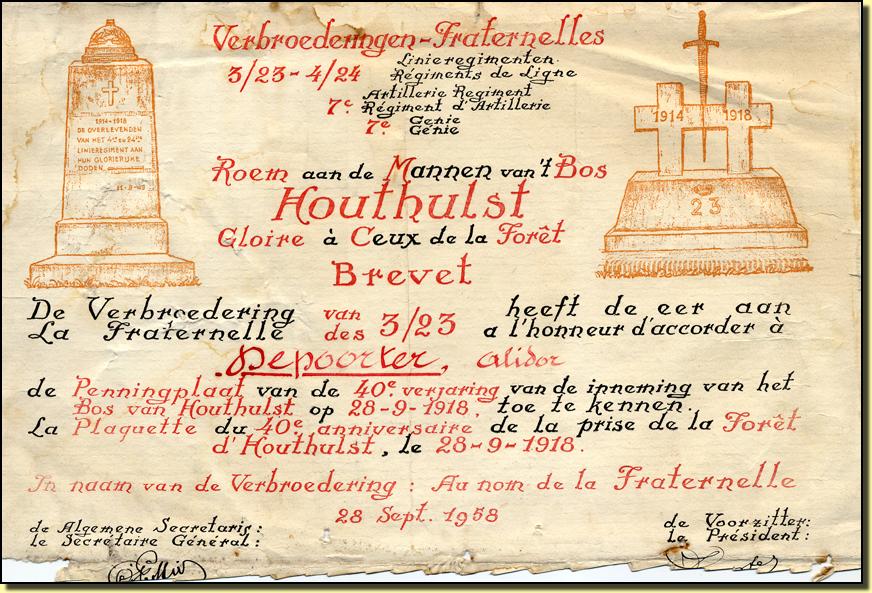 Verbroederingen-Fraternelles
3/23 - 4/24
Linieregimenten.
Régiments de Ligne
Artillerie Regiment
7e Régiment d'Artillerie
7e. Genie
Génie
1914-1918
DE OVERLEVENDEN
VAN HET 4de EN 24ste
LINIEREGIMENT AAN
HUN GLORIERIJKE
DODEN
1914 1918
23
Roem aan de Mannen van't Bos
Houthulst
Gloire à Ceux de la Forêt
Brevet
De Verbroedering van 3/23 heeft de eer aan
La Fraternelle des a l'honneur d'accorder à
Depoorter, Alidor
de Penningplaat van de 40e verjaring van de inneming van het
Bos van Houthulst op 28-9-1918, toe te kennen.
La Plaquette du 40e anniversaire de la prise de la Forêt
d'Houthulst, le 28-9-1918.
In naam van de Verbroedering : Au nom de la Fraternelle
28 Sept. 1958
de Algemene Secretaris:
le Secrétaire Général :
de Voorzitter:
le Président :